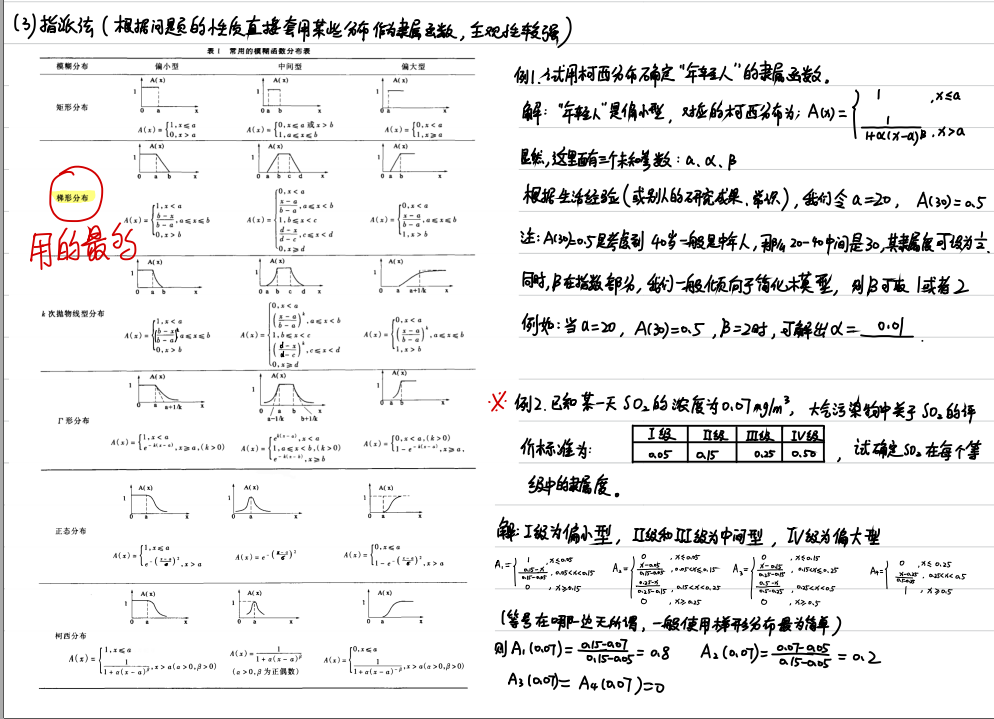 (3)指派法(根据问题的性质直接套用某些分布作为隶属函数,主观性较强)
表1 常用的模糊函数分布表
模糊分布 偏小型 中间型 偏大型
矩形分布
A(x) A(x) A(x)
1 1 1
0 a x 0 a b x 0 a x
A(x)={1,x⩽a 0,x>a
A(x)={0,x⩽a 或 x>b 1,a⩽x⩽b
A(x)={0,x<a 1,x⩾a
梯形分布
用的最多
A(x) A(x) A(x)
1 1 1
0 a b x 0 a b c d x 0 a b x
A(x)={1,x<a (b-x)/(b-a),a⩽x⩽b 0,x>b
A(x)={0,x<a (x-a)/(b-a),a⩽x<b 1,b⩽x<c (d-x)/(d-c),c⩽x<d 0,x⩾d
A(x)={0,x<a (x-a)/(b-a),a⩽x⩽b 1,x>b
k次抛物线型分布
1 1 1
0 a b x 0 a b c d x 0 a a+1/k x
A(x)={1,x<a ((b-x)/(b-a))^k,a⩽x⩽b 0,x>b
A(x)={0,x<a ((x-a)/(b-a))^k,a⩽x<b 1,b⩽x<c ((d-x)/(d-c))^k,c⩽x<d 0,x⩾d
A(x)={0,x<a ((x-a)/(b-a))^k,a⩽x⩽b 1,x>b
Γ形分布
A(x) A(x) A(x)
1 1 1
0 a a+1/k x a-1/k a b b+1/k x 0 a b x
A(x)={1,x<a e^-k(x-a),x⩾a,(k>0)
A(x)={e^k(x-a),x<a 1,a⩽x<b,(k>0) e^-k(x-b),x⩾b
A(x)={0,x<a,(k>0) 1-e^-k(x-a),x⩾a,
正态分布
A(x) A(x) A(x)
1 1 1
0 a x 0 a x 0 a x
A(x)={1,x⩽a e^-((x-a)/σ)^2,x>a
A(x)=e^-((x-a)/σ)^2
A(x)={0,x⩽a 1-e^-((x-a)/σ)^2,x>a
柯西分布
A(x) A(x) A(x)
1 1 1
0 a x 0 a x 0 a x
A(x)={1,x⩽a 1/(1+α(x-a)^β),x>a(α>0,β>0)
A(x)=1/(1+α(x-a)^β)
(α>0,β为正偶数)
A(x)={0,x⩽a 1/(1+α(x-a)^-β),x>a(α>0,β>0)
例1.试用柯西分布确定“年轻人”的隶属函数。
解:“年轻人”是偏小型,对应的柯西分布为: A(x)={1 ,x≤a 1/(1+α(x-a)^β) ,x>a
显然,这里面有三个未知参数:a、α、β
根据生活经验(或别人的研究成果、常识),我们令a=20, A(30)=0.5
注:A(30)=0.5是考虑到40岁一般是中年人,那么20-40中间是30,其隶属度可设为1/2.
同时,β在指数部分,我们一般倾向于简化模型,则β可取1或者2
例如:当a=20,A(30)=0.5,β=2时,可解出α= 0.01 .
※ 例2.已知某一天SO₂的浓度为0.07mg/m³,大气污染物中关于SO₂的评
价标准为: Ⅰ级 Ⅱ级 Ⅲ级 Ⅳ级
0.05 0.15 0.25 0.50 ,试确定SO₂在每个等
级中的隶属度。
解:Ⅰ级为偏小型,Ⅱ级和Ⅲ级为中间型,Ⅳ级为偏大型
A₁={1 ,x≤0.05 (0.15-x)/(0.15-0.05) ,0.05<x<0.15 0 ,x≥0.15
A₂={0 ,x≤0.05 (x-0.05)/(0.15-0.05) ,0.05<x≤0.15 (0.25-x)/(0.25-0.15) ,0.15<x<0.25 0 ,x≥0.25
A₃={0 ,x≤0.15 (x-0.15)/(0.25-0.15) ,0.15<x≤0.25 (0.5-x)/(0.5-0.25) ,0.25<x<0.5 0 ,x≥0.5
A₄={0 ,x≤0.25 (x-0.25)/(0.5-0.25) ,0.25<x<0.5 1 ,x≥0.5
(等号在哪一边无所谓,一般使用梯形分布最为简单)
则A₁(0.07)=(0.15-0.07)/(0.15-0.05)=0.8 A₂(0.07)=(0.07-0.05)/(0.15-0.05)=0.2
A₃(0.07)=A₄(0.07)=0